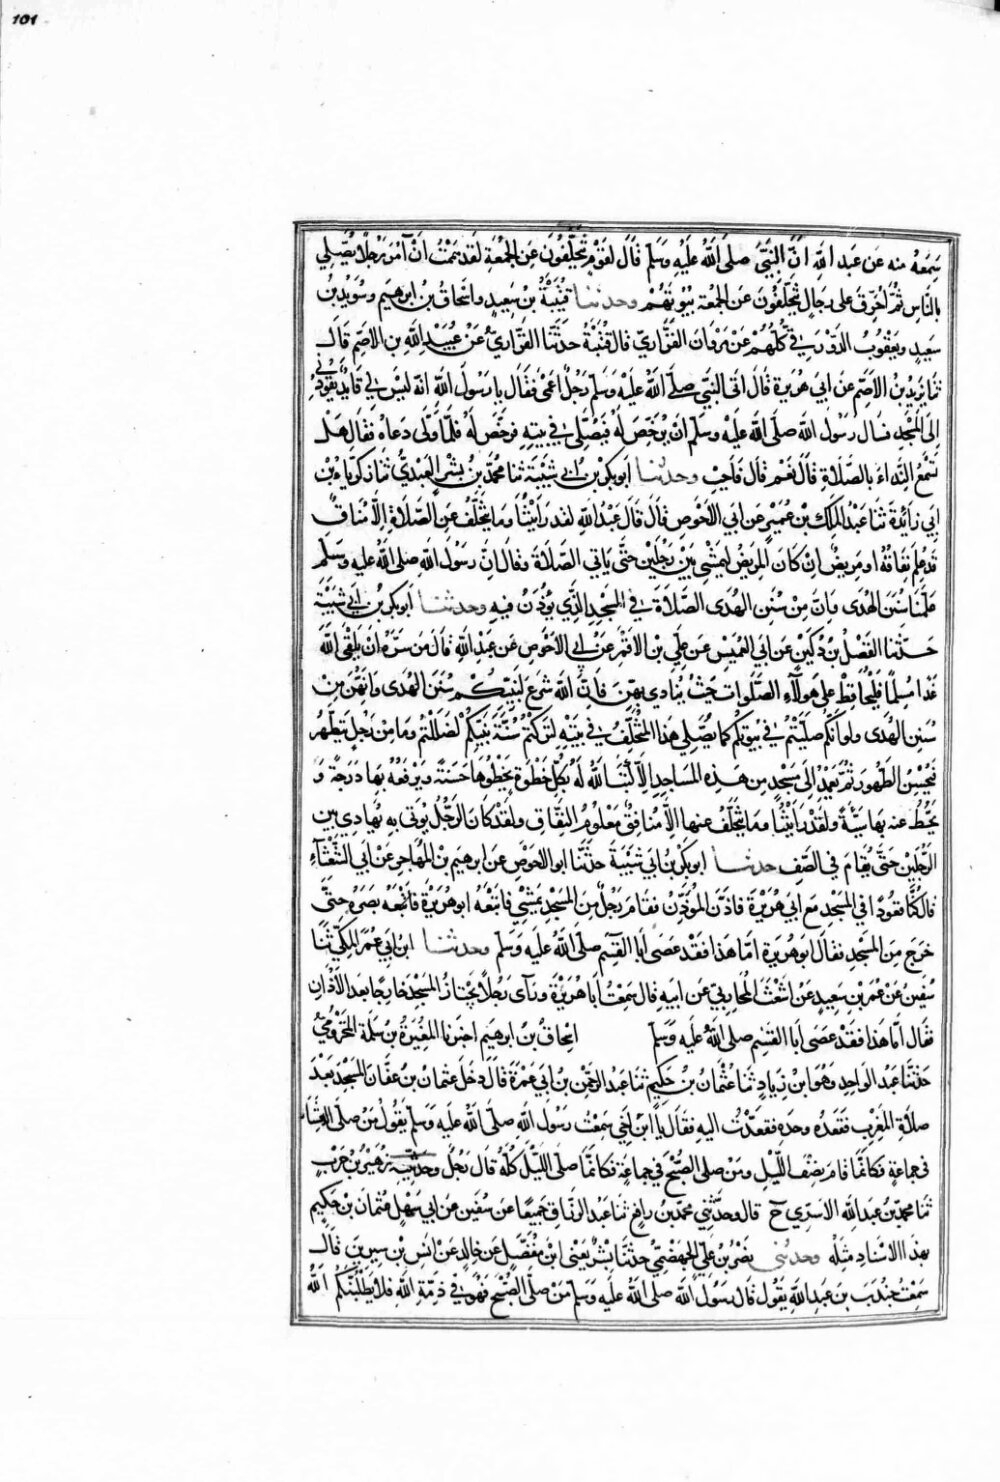 101
سَمِعَهُ منه عَن عَبد اللهِ انَّ النَّبِيَّ صلى اللهُ عَلَيْهِ وَسَلَّمَ قَالَ لقَوْمٍ يَتَخَلَّفُون عَنِ الجُمُعَةِ لَقَد هَمَمْتُ أنْ آمُرَ رَجُلًا يُصَلِّي
بالنَّاسِ ثُمَّ أُحَرِّقَ على رِجَالٍ يَتَخَلَّفُونَ عَنِ الجُمُعَة بُيُوتَهُمْ وحدثنا قُتَيْبَةُ بن سَعِيدٍ واسْحَاقُ بنُ ابرهيم وسُوَيدُ بنُ
سَعِيدٍ ويَعْقُوبُ الدَّوْرَقي كُلُّهُمْ عَنْ مَروَان الفَزَارِيّ قال قُتَيْبَةُ حَدَّثَنَا الفَزَارِيُّ عَنْ عُبَيْدِ اللهِ بنِ الاَصَمِّ قَالَ
ثَنَا يَزِيدُ بنُ الاَصَمِّ عَن أبي هُرَيرةَ قَالَ اتَى النَّبيَّ صلى اللهُ عَلَيْهِ وَسَلَّمَ رَجُلٌ أعْمَى فَقَالَ يا رَسُولَ اللهِ انّه لَيْسَ لِي قَائِدٌ يَقُودُنِي
إلَى المَسْجِدِ فسَالَ رَسُولَ اللهِ صلّى اللهُ عَلَيْهِ وَسَلَّمَ انْ يُرَخِّصَ لَهُ فيُصَلِّيَ فِي بيتِهِ فرَخَّصَ لَهُ فَلَمَّا وَلَّى دَعَاهُ فقَالَ هَلْ
تَسْمَعُ النِّدَاءَ بالصَّلاةِ قَالَ نَعَمْ قال فَأجِبْ وحدثنا أبُو بَكْرِ بنُ ابي شَيْبَةَ ثنا محمّد بن بِشْرٍ العَبْدِيُّ ثنا زَكَرِيّاءُ بنُ
ابي زَائِدةَ ثَنَا عَبْدُ المَلِكِ بن عُمَيْرٍ عَن ابي الأحْوَصِ قَالَ قَالَ عَبْدُ اللهِ لقَد رَأيْتُنَا وما يَتَخَلَّفُ عَن الصَّلاةِ إلّا مُنَافِقٌ
قد عُلِمَ نِفَاقُهُ او مَرِيضٌ انْ كَانَ المَرِيضُ لَيَمْشِي بَيْنَ رَجُلَيْنِ حَتَّى يَاتِيَ الصَّلَاةَ وقَالَ انّ رَسُولَ اللهِ صلى اللهُ عليه وسَلَّمَ
عَلَّمَنَا سُنَنَ الهُدَى وانَّ مِنْ سُنَنِ الهُدَى الصَّلَاةَ فِي المَسْجِدِ الَّذِي يُؤَذَّنُ فيهِ وحدثنا أبُو بَكْرِ بن ابي شَيْبَةَ
حَدَّثَنا الفَضْلُ بنُ دُكَيْنٍ عَن ابي العُمَيْسِ عَن عَلِيِّ بنِ الاقْمَرِ عَنْ ابي الاَحْوَصِ عَن عَبْدِ اللهِ قَالَ مَن سَرَّهُ انْ يَلْقَى اللهَ
غَدًا مُسلِمًا فَلْيُحَافِظْ على هَولآءِ الصَّلَوَات حَيْثُ يُنَادى بِهِنَّ فَانَّ اللهَ شَرَعَ لِنَبِيِّكُمْ سُنَنَ الهُدَى وَانَّهُنَّ مِنْ
سُنَنِ الهُدَى ولوانَّكُمْ صَلَّيْتُمْ فِي بيوتِكُمْ كما يُصَلِّي هَذَا المُتَخَلِّفُ فِي بَيْتِهِ لتَرَكْتُمْ سُنَّةَ نَبِيِّكُمْ لَضَلَلْتُمْ وَمَا مِنْ رَجُلٍ يَتَطَهَّرُ
فَيُحْسِنُ الطُّهُورَ ثُمَّ يَعْمِدُ الَى مَسْجِدٍ مِن هَذِهِ المَسَاجِدِ إلَّا كَتَبَ اللهُ لَهُ بكُلِّ خَطْوَةٍ يَخْطُوهَا حَسَنَةً وَيَرْفَعُهُ بها دَرَجَةً وَ
يَحُطُّ عنه بهَا سَيِّئَةً ولَقَدْ رَأيْتُنَا ومَا يَتَخَلَّفُ عنها الَّا مُنَافِقٌ مَعْلُومُ النِّفَاقِ ولقَدْ كَانَ الرَّجُلُ يُوتى به يُهَادَى بين
الرَّجُلَيْنِ حَتَّى يُقَامَ في الصَّفِ حدثنا ابو بَكْرِ بنُ ابي شَيْبَةَ حدَّثَنَا ابو الاحْوَصِ عَن ابرهيم بْنِ المُهَاجِرِ عَنْ ابي الشَّعْثَآءِ
قَالَ كُنَّا قعُودًا في المَسْجِدِ مَعَ ابي هُرَيْرَةَ فاذَّنَ المُؤَذِّنُ فقَامَ رَجُلٌ مِنَ المَسْجِدِ يَمْشِي فَاتْبَعَهُ ابو هُرَيْرَةَ بَصَرَهُ حتَّى
خَرَجَ مِنَ المَسْجِدِ فقالَ ابو هُرَيرة امَّا هَذَا فَقَدْ عَصَى أبَا القَاسِمِ صَلَّى اللهُ عَلَيه وَسَلَّمَ وحدثنا ابنُ أبي عُمَرَ المَكِّيُّ ثَنَا
سُفين عَنْ عُمَرَ بنِ سَعِيدٍ عَنْ اشْعَثَ المُحَارِبيّ عَن ابيهِ قَالَ سَمِعْتُ أبَا هُرَيْرَةَ ورَآى رَجُلًا يَجْتَازُ المَسْجِدَ خَارِجًا بعدَ الأذَانِ
فقَال امَّا هَذَا فَقَدْ عَصَى أبَا القَسِم صلى اللهُ عَلَيه وَسَلَّمَ اسْحَاقُ بنُ ابرهيمَ اخبَرَنا المُغِيرَةُ بن سَلَمةَ المَخْزُومِيُّ
حَدَّثَنَا عَبدُ الوَاحِدِ وهُوَ ابنُ زِيَادٍ ثنا عُثْمَانُ بنُ حَكِيمٍ ثنا عَبدُ الرَّحْمَنِ بن ابي عَمْرَةَ قَالَ دَخَلَ عثمانُ بنُ عَفَّانَ المَسْجِدَ بَعْدَ
صلَاةِ المَغْرِبِ فقَعَدَ وحدَهُ فقَعَدْتُ اليهِ فقَالَ يا ابنَ اخِي سَمِعْتُ رَسُولَ اللهِ صلَّى اللهُ عَلَيه وَسَلَّمَ يَقُولُ مَن صَلَّى العِشَاءَ
في جَماعَةٍ فكَانَّمَا قامَ نِصْفَ اللَّيْلِ ومَنْ صلى الصُّبْحَ فِي جَمَاعَةٍ فكَانَّمَا صلى اللَّيْلَ كُلَّهُ قَالَ وحدثنيه زُهَيْرُ بن حَرْبٍ
ثَنَا محمّدُ بنُ عَبدِ اللهِ الاَسَدِي ح قال وحدَّثَنِي محمّدُ بن رافِعٍ ثنا عَبْدُ الرزَّاق جَمِيعًا عَن سُفين عَن ابي سَهْلٍ عُثْمان بنْ حَكِيمٍ
بهَذَا الاسْنَادِ مِثْلَهُ وحدثني نَصْرُ بنُ عَلِيّ الجَهْضَمِيُّ حدَّثَنَا بِشْرٌ يَعْنِى ابنَ مُفَضَّلٍ عَن خالِدٍ عَن أنَسِ بْنِ سِيرِينَ قَالَ
سَمِعْتُ جُنْدَبَ بنَ عَبدِ اللهِ يَقُولُ قَالَ رَسُولُ اللهِ صلى اللهُ عَلَيه وَسَلَّمَ مَن صَلَّى الصُّبْحَ فَهُوَ في ذِمَّةِ اللهِ فَلَا يَطْلُبَنَّكُم اللهُ